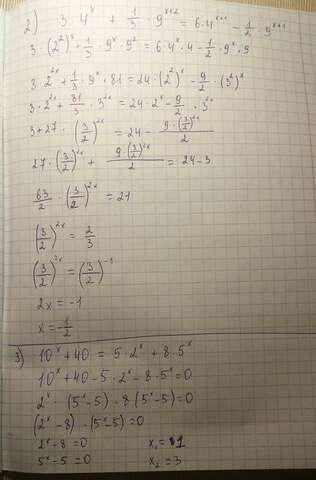 2) 3·4^x + 1/3 · 9^(x+2) = 6·4^(x+1) - 1/2 · 9^(x+1)
3·(2^2)^x + 1/3 · 9^x · 9^2 = 6·4^x·4 - 1/2 · 9^x · 9
3·2^(2x) + 1/3 · 9^x · 81 = 24·(2^2)^x - 9/2 · (3^2)^x
3·2^(2x) + 81/3 · 3^(2x) = 24·2^(2x) - 9/2 · 3^(2x)
3+27·(3/2)^(2x) = 24 - 9·(3/2)^(2x)/2
27·(3/2)^(2x) + 9(3/2)^(2x)/2 = 24-3
63/2 · (3/2)^(2x) = 21
(3/2)^(2x) = 2/3
(3/2)^(2x) = (3/2)^(-1)
2x = -1
x = -1/2
3) 10^x + 40 = 5·2^x + 8·5^x
10^x + 40 - 5·2^x - 8·5^x = 0
2^x · (5^x - 5) - 8(5^x - 5) = 0
(2^x - 8) · (5^x - 5) = 0
2^x - 8 = 0 x₁ = 1
5^x - 5 = 0 x₂ = 3